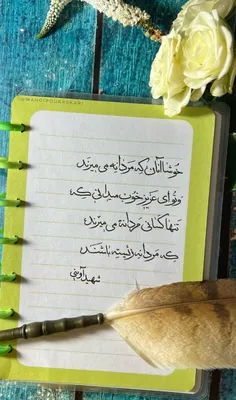 @MAHDIPOURASKARI
خوشا آنان که مردانه می میرند
و تو ای عزیز خوب میدانی که
تنها کسانی مردانه می میرند
که مردانه زیسته باشند
شهید آوینی